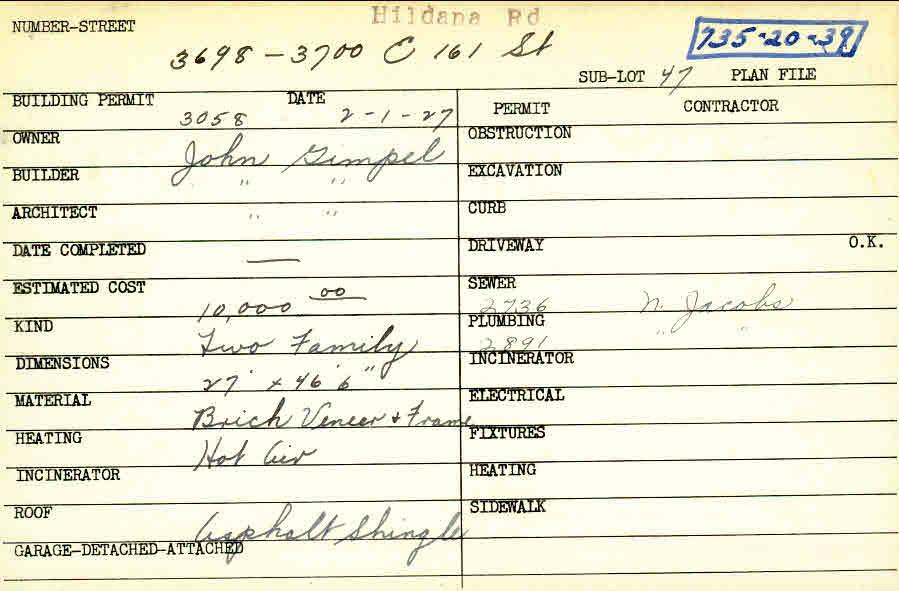 Hildana Rd
NUMBER-STREET
3698-3700 E 161 St
735-20-39
SUB-LOT 47 PLAN FILE
BUILDING PERMIT 3058 DATE 2-1-27
OWNER John Gimpel
BUILDER " "
ARCHITECT " "
DATE COMPLETED —
ESTIMATED COST 10,000 00
KIND Two Family
DIMENSIONS 27' x 46' 6"
MATERIAL Brick Veneer + Frame
HEATING Hot Air
INCINERATOR
ROOF Asphalt Shingle
GARAGE-DETACHED-ATTACHED
PERMIT CONTRACTOR
OBSTRUCTION
EXCAVATION
CURB
DRIVEWAY O.K.
SEWER 2736 N. Jacobs
PLUMBING 2891 " "
INCINERATOR
ELECTRICAL
FIXTURES
HEATING
SIDEWALK